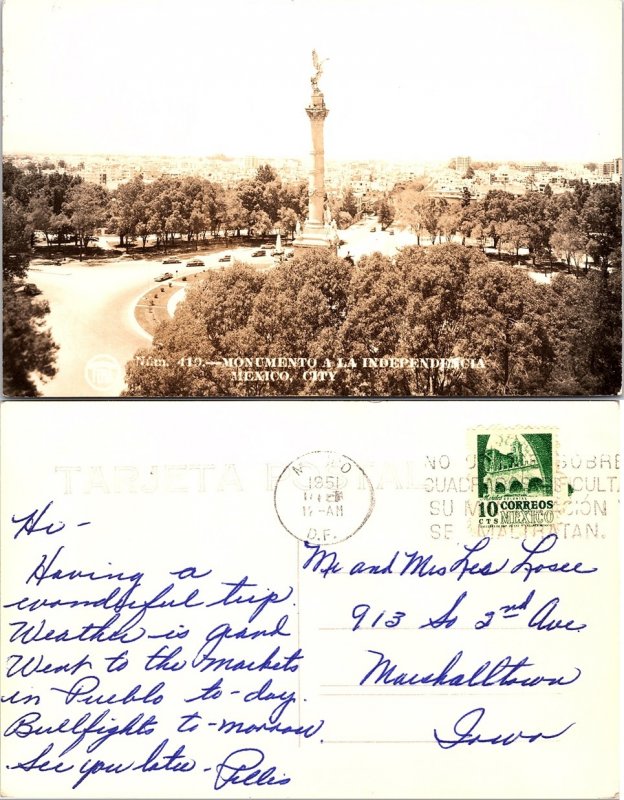 Núm. 419.—MONUMENTO A LA INDEPENDENCIA
MEXICO, CITY
TARJETA POSTAL
1951
11 FEB
11-AM
D.F.
NO
SOBRE
SU
SE MALTRATAN.
10 CORREOS
CTS MEXICO
Hi -
Having a
wonderful trip.
Weather is grand
Went to the Markets
in Pueblo to-day.
Bullfights to-morrow.
See you later -
Mr and Mrs Les Losee
913 So 2nd Ave.
Marshalltown
Iowa